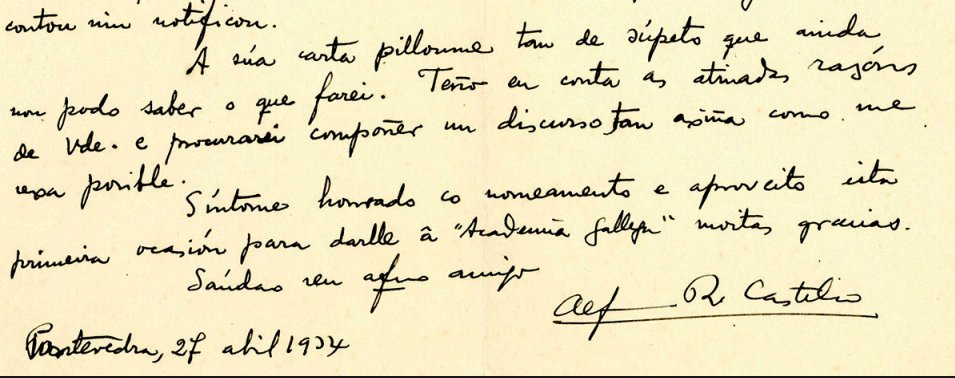 contou nin notificou.
A súa carta pilloume tan de súpeto que ainda
non podo saber o que farei. Teño en conta as atinadas razóns
de Vde. e procurarei compoñer un discurso tan axiña como me
sexa posible.
Síntome honrado co nomeamento e aproveito ista
primeira ocasión para darlle â "Academia Gallega" moitas gracias.
Saúdao seu afmo amigo
R. Castelao
Pontevedra, 27 abril 1934